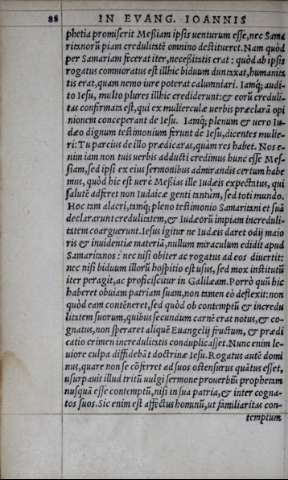 88 IN EVANG. IOANNIS
phetia promiserit Messiam ipsis uenturum esse, nec Sama
ritanorū piam credulitatē omnino destitueret. Nam quòd
per Samariam fecerat iter, necessitatis erat: quòd ab ipsis
rogatus commoratus est illhic biduum duntaxat, humanita
tis erat, quam nemo iure poterat calumniari. Iamq; audi-
to Iesu, multo plures illhic crediderunt: & eorū creduli-
tas confirmata est, qui ex mulierculæ uerbis præclarā opi
nionem conceperant de Iesu. Iamq; plenum & uero Iu-
dæo dignum testimonium ferunt de Iesu, dicentes mulie-
ri: Tu parcius de illo prædicaras, quam res habet. Nos e-
nim iam non tuis uerbis adducti credimus hunc esse Mes-
siam, sed ipsi ex eius sermonibus admirandis certum habe
mus, quòd hic est uere Messias ille Iudæis expectatus, qui
salutē adferet non Iudaicæ genti tantum, sed toti mundo.
Hoc tam alacri, tamq; pleno testimonio Samaritani et suā
declararunt credulitatem, & Iudæorū impiam increduli-
tatem coarguerunt. Iesus igitur ne Iudæis daret odij maio
ris & inuidentiæ materiā, nullum miraculum edidit apud
Samaritanos: nec nisi obiter ac rogatus ad eos diuertit:
nec nisi biduum illorū hospitio est usus, sed mox institutū
iter peragit, ac proficiscitur in Galilæam. Porrò quū hic
haberet obuiam patriam suam, non tamen eò deflexit: non
quòd eam contēneret, sed quòd ob contemptū & incredu
litatem suorum, quibus secundum carnē erat notus, & co-
gnatus, non speraret aliquē Euangelij fructum, & prædi
catio crimen incredulitatis conduplicasset. Nunc enim le-
uiore culpa diffidebāt doctrinæ Iesu. Rogatus autē domi
nus, quare non se cōferret ad suos ostensurus quātus esset,
usurpauit illud tritū uulgi sermone prouerbiū, prophetam
nusquā esse contemptū, nisi in sua patria, & inter cogna-
tos suos. Sic enim est affectus hominū, ut familiaritas con-
temptum